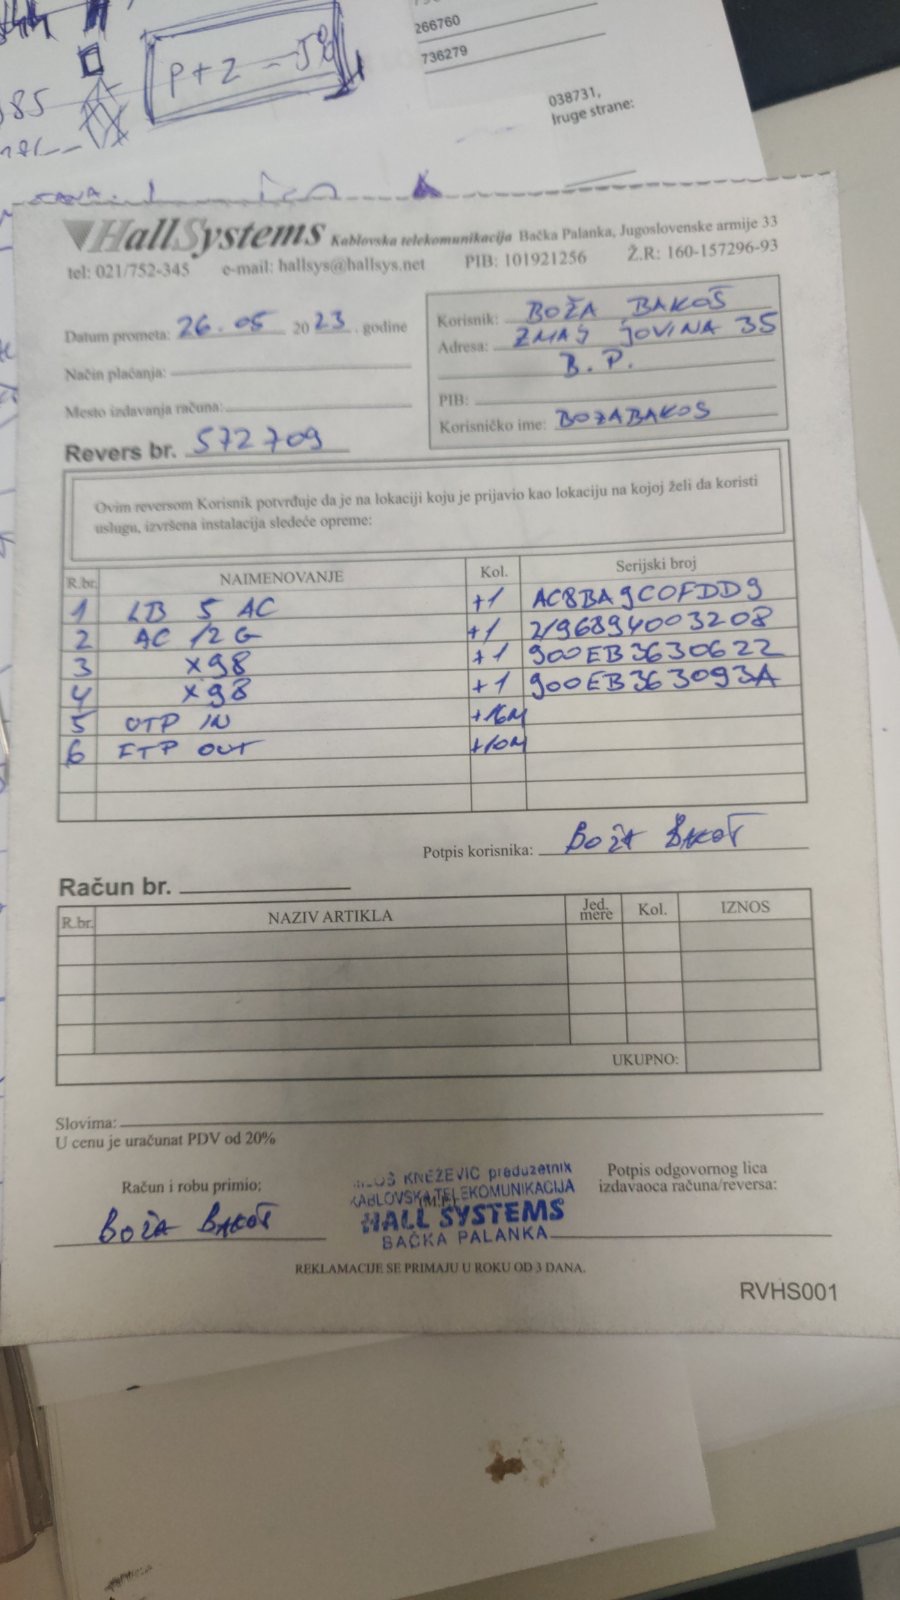 P + Z - 5%
266760
736279
038731,
lruge strane:
85
HallSystems Kablovska telekomunikacija Bačka Palanka, Jugoslovenske armije 33
tel: 021/752-345 e-mail: hallsys@hallsys.net PIB: 101921256 Ž.R: 160-157296-93
Datum prometa: 26.05 2023. godine
Način plaćanja:
Mesto izdavanja računa:
Revers br. 572709
Korisnik: BOŽA BAKOŠ
Adresa: ZMAJ JOVINA 35
B. P.
PIB:
Korisničko ime: BOZABAKOS
Ovim reversom Korisnik potvrđuje da je na lokaciji koju je prijavio kao lokaciju na kojoj želi da koristi
uslugu, izvršena instalacija sledeće opreme:
R.br. NAIMENOVANJE Kol. Serijski broj
1 LB 5 AC +1 AC8BA9C0FDD9
2 AC 12G +1 2196894003208
3 X98 +1 900EB3630622
4 X98 +1 900EB363093A
5 UTP IN +16M
6 FTP OUT +10M
Potpis korisnika: Boža Bakoš
Račun br.
R.br. NAZIV ARTIKLA Jed. mere Kol. IZNOS
UKUPNO:
Slovima:
U cenu je uračunat PDV od 20%
Račun i robu primio;
Boža Bakoš
KNEŽEVIĆ preduzetnik
KABLOVSKA TELEKOMUNIKACIJA
(M.P.)
HALL SYSTEMS
BAČKA PALANKA
Potpis odgovornog lica
izdavaoca računa/reversa:
REKLAMACIJE SE PRIMAJU U ROKU OD 3 DANA.
RVHS001